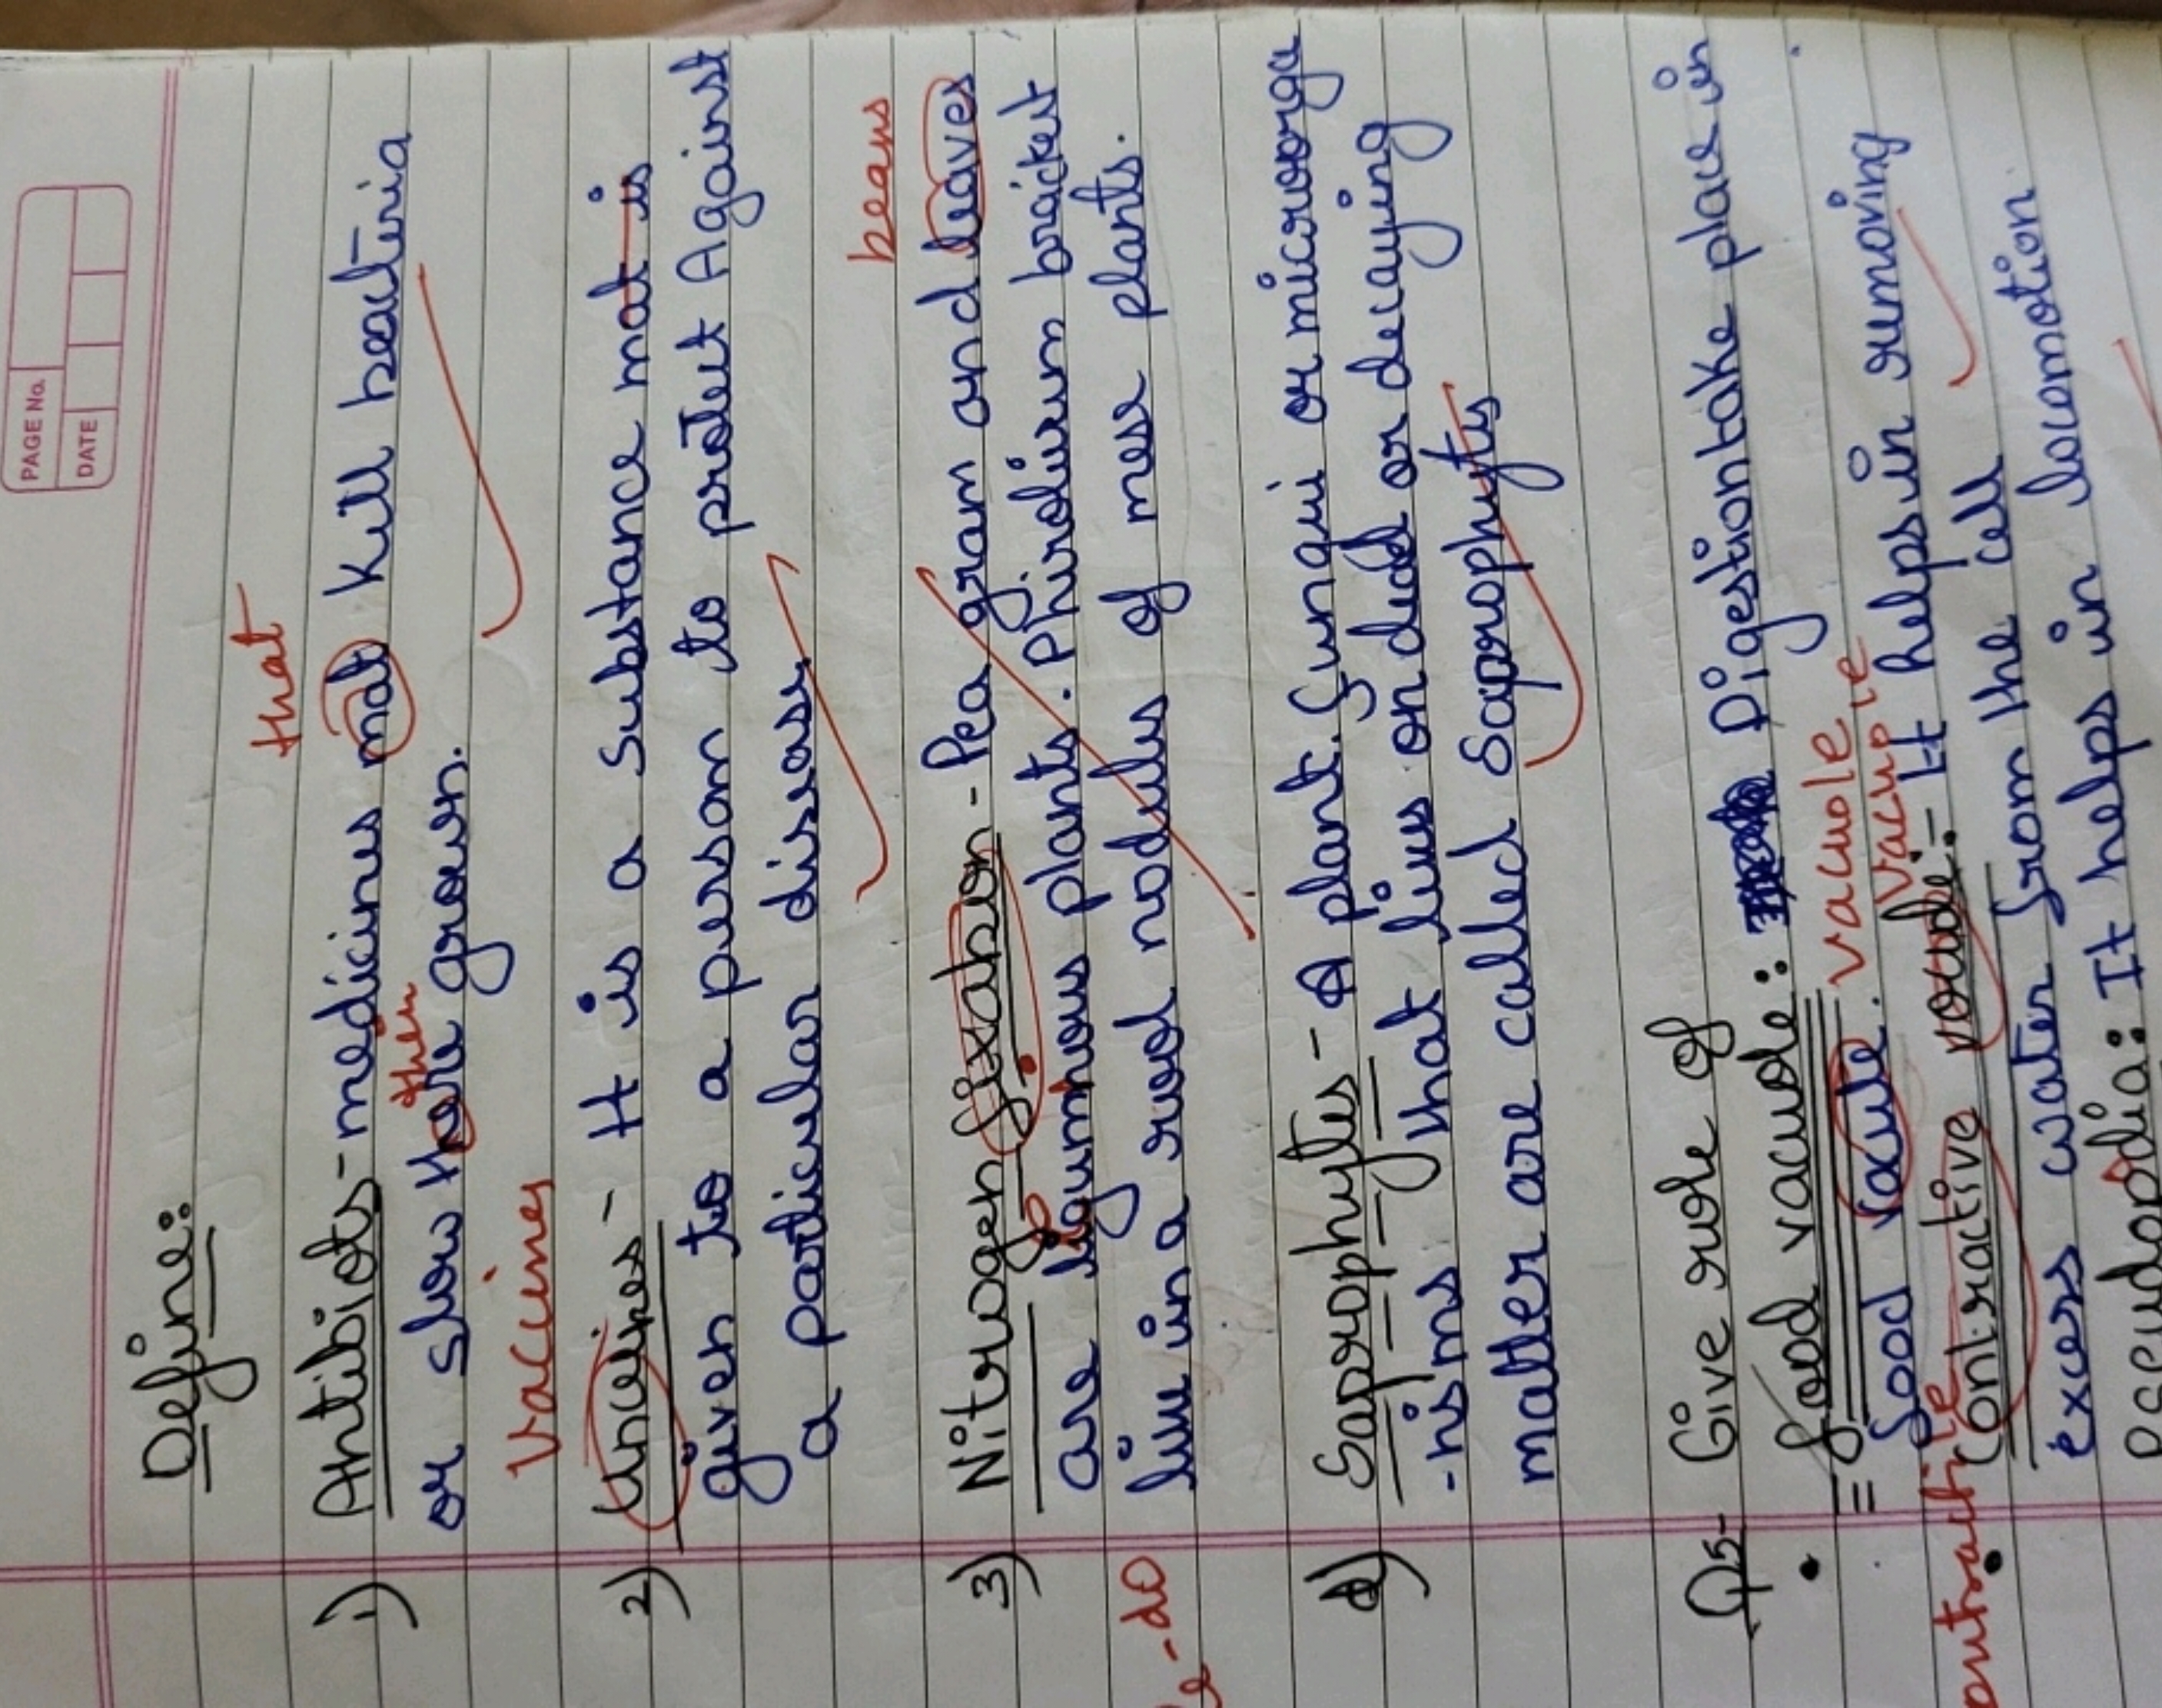 PAGE No.
DATE
Define:
that
1) Antibiots - medicines mat kill bacteria
then
or slow here grown.
Vaccines
2) It is a substance mat is
given to a person to protect Against
a particular disease
beans
3) Nitrogen fixation - Pea gram and leaves
are plants. Phirodium bracket
live in a rood nodules of mese plants.
Re-do
4) Saprophytes - A plant, Fungui or microorga
-nisms that lives on dead or decaying
matter are called Saprophyts
Q5- Give role of
• food vacuole: Digestion take place in
vacuole
food vacule.
vacuole
contractive : - It helps in removing
excess water from the cell
Pseudopodia: It helps in locomotion